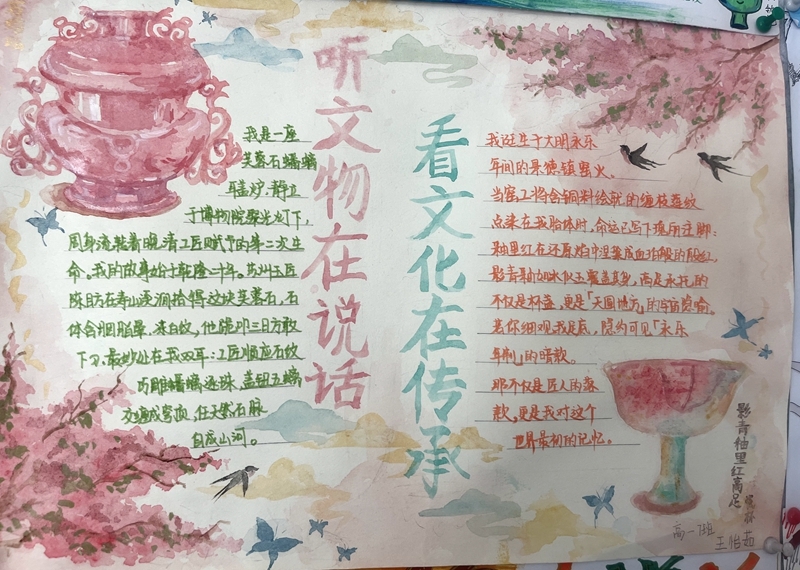 听文物在说话
看文化在传承
我是一座
芙蓉石蟠螭
耳盖炉.静立
于博物院聚光灯下,
周身流转着晚清工匠赋予的第二次生
命。我的故事始于乾隆二十年。苏州玉匠
陈目方在寿山溪涧拾得这块芙蓉石,石
体含胭脂晕.来白纹,他跪叩三日方敢
下刀.最妙处在我双耳:工匠顺应石纹
巧雕蟠螭逐珠.盖钮五螭
交缠成穹顶.任天然石脉
自成山河。
我诞生于大明永乐
年间的景德镇窑火、
当窑工将含铜料绘就的缠枝莲纹
点染在我胎体时,命运已写下瑰丽注脚:
釉里红在还原焰中涅槃成血珀般的殷红。
影青釉如冰似玉覆盖其身,高足承托的
不仅是杯盏,更是「天圆地方」的宇宙隐喻。
若你细观我足底,隐约可见「永乐
年制」的暗款。
那不仅是匠人的落
款,更是我对这个
世界最初的记忆。
影青釉里红高足
杯
高一7班
王怡茹